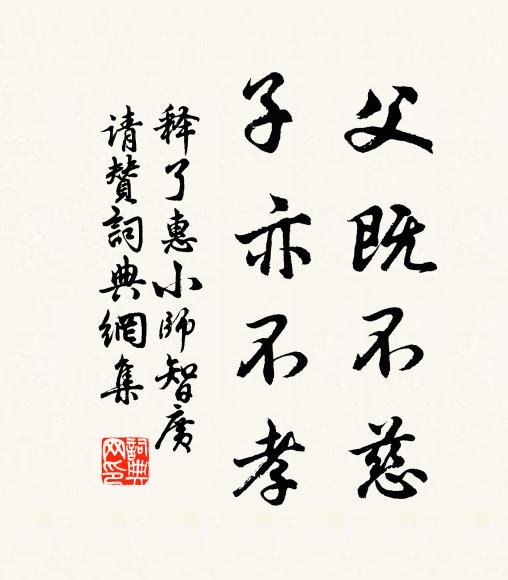 父既不慈
子亦不孝
释了惠小师智广
请赞詞典網集
詞典网印